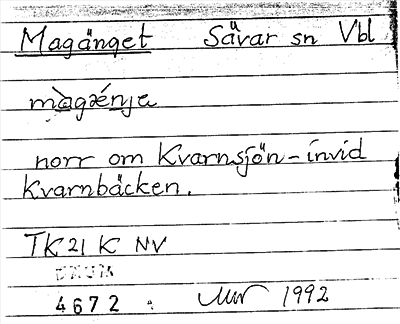 Magänget Sävar sn Vbl
màgǽnja
norr om Kvarnsjön - invid
Kvarnbäcken.
TK 21 K NV
4672 1992